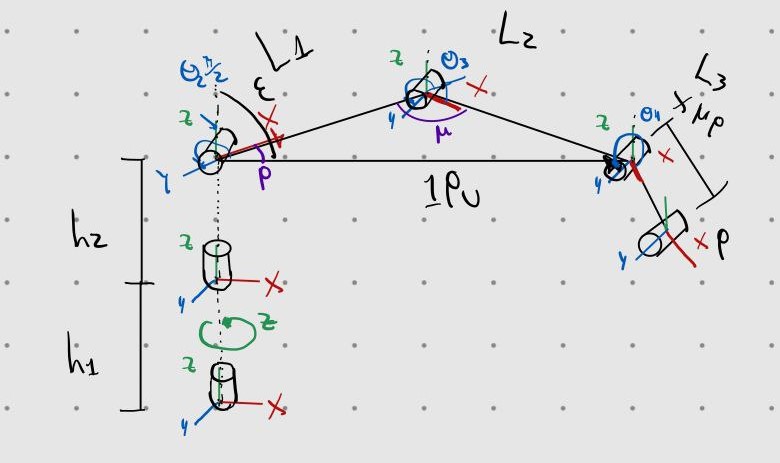 L1
L2
L3
Θ2 π/2
ε
z
X
y
ρ
z
Θ3
X
y
μ
z
Θ4
X
y
μp
1Pu
h2
z
y
X
y
X
p
z
h1
z
y
X